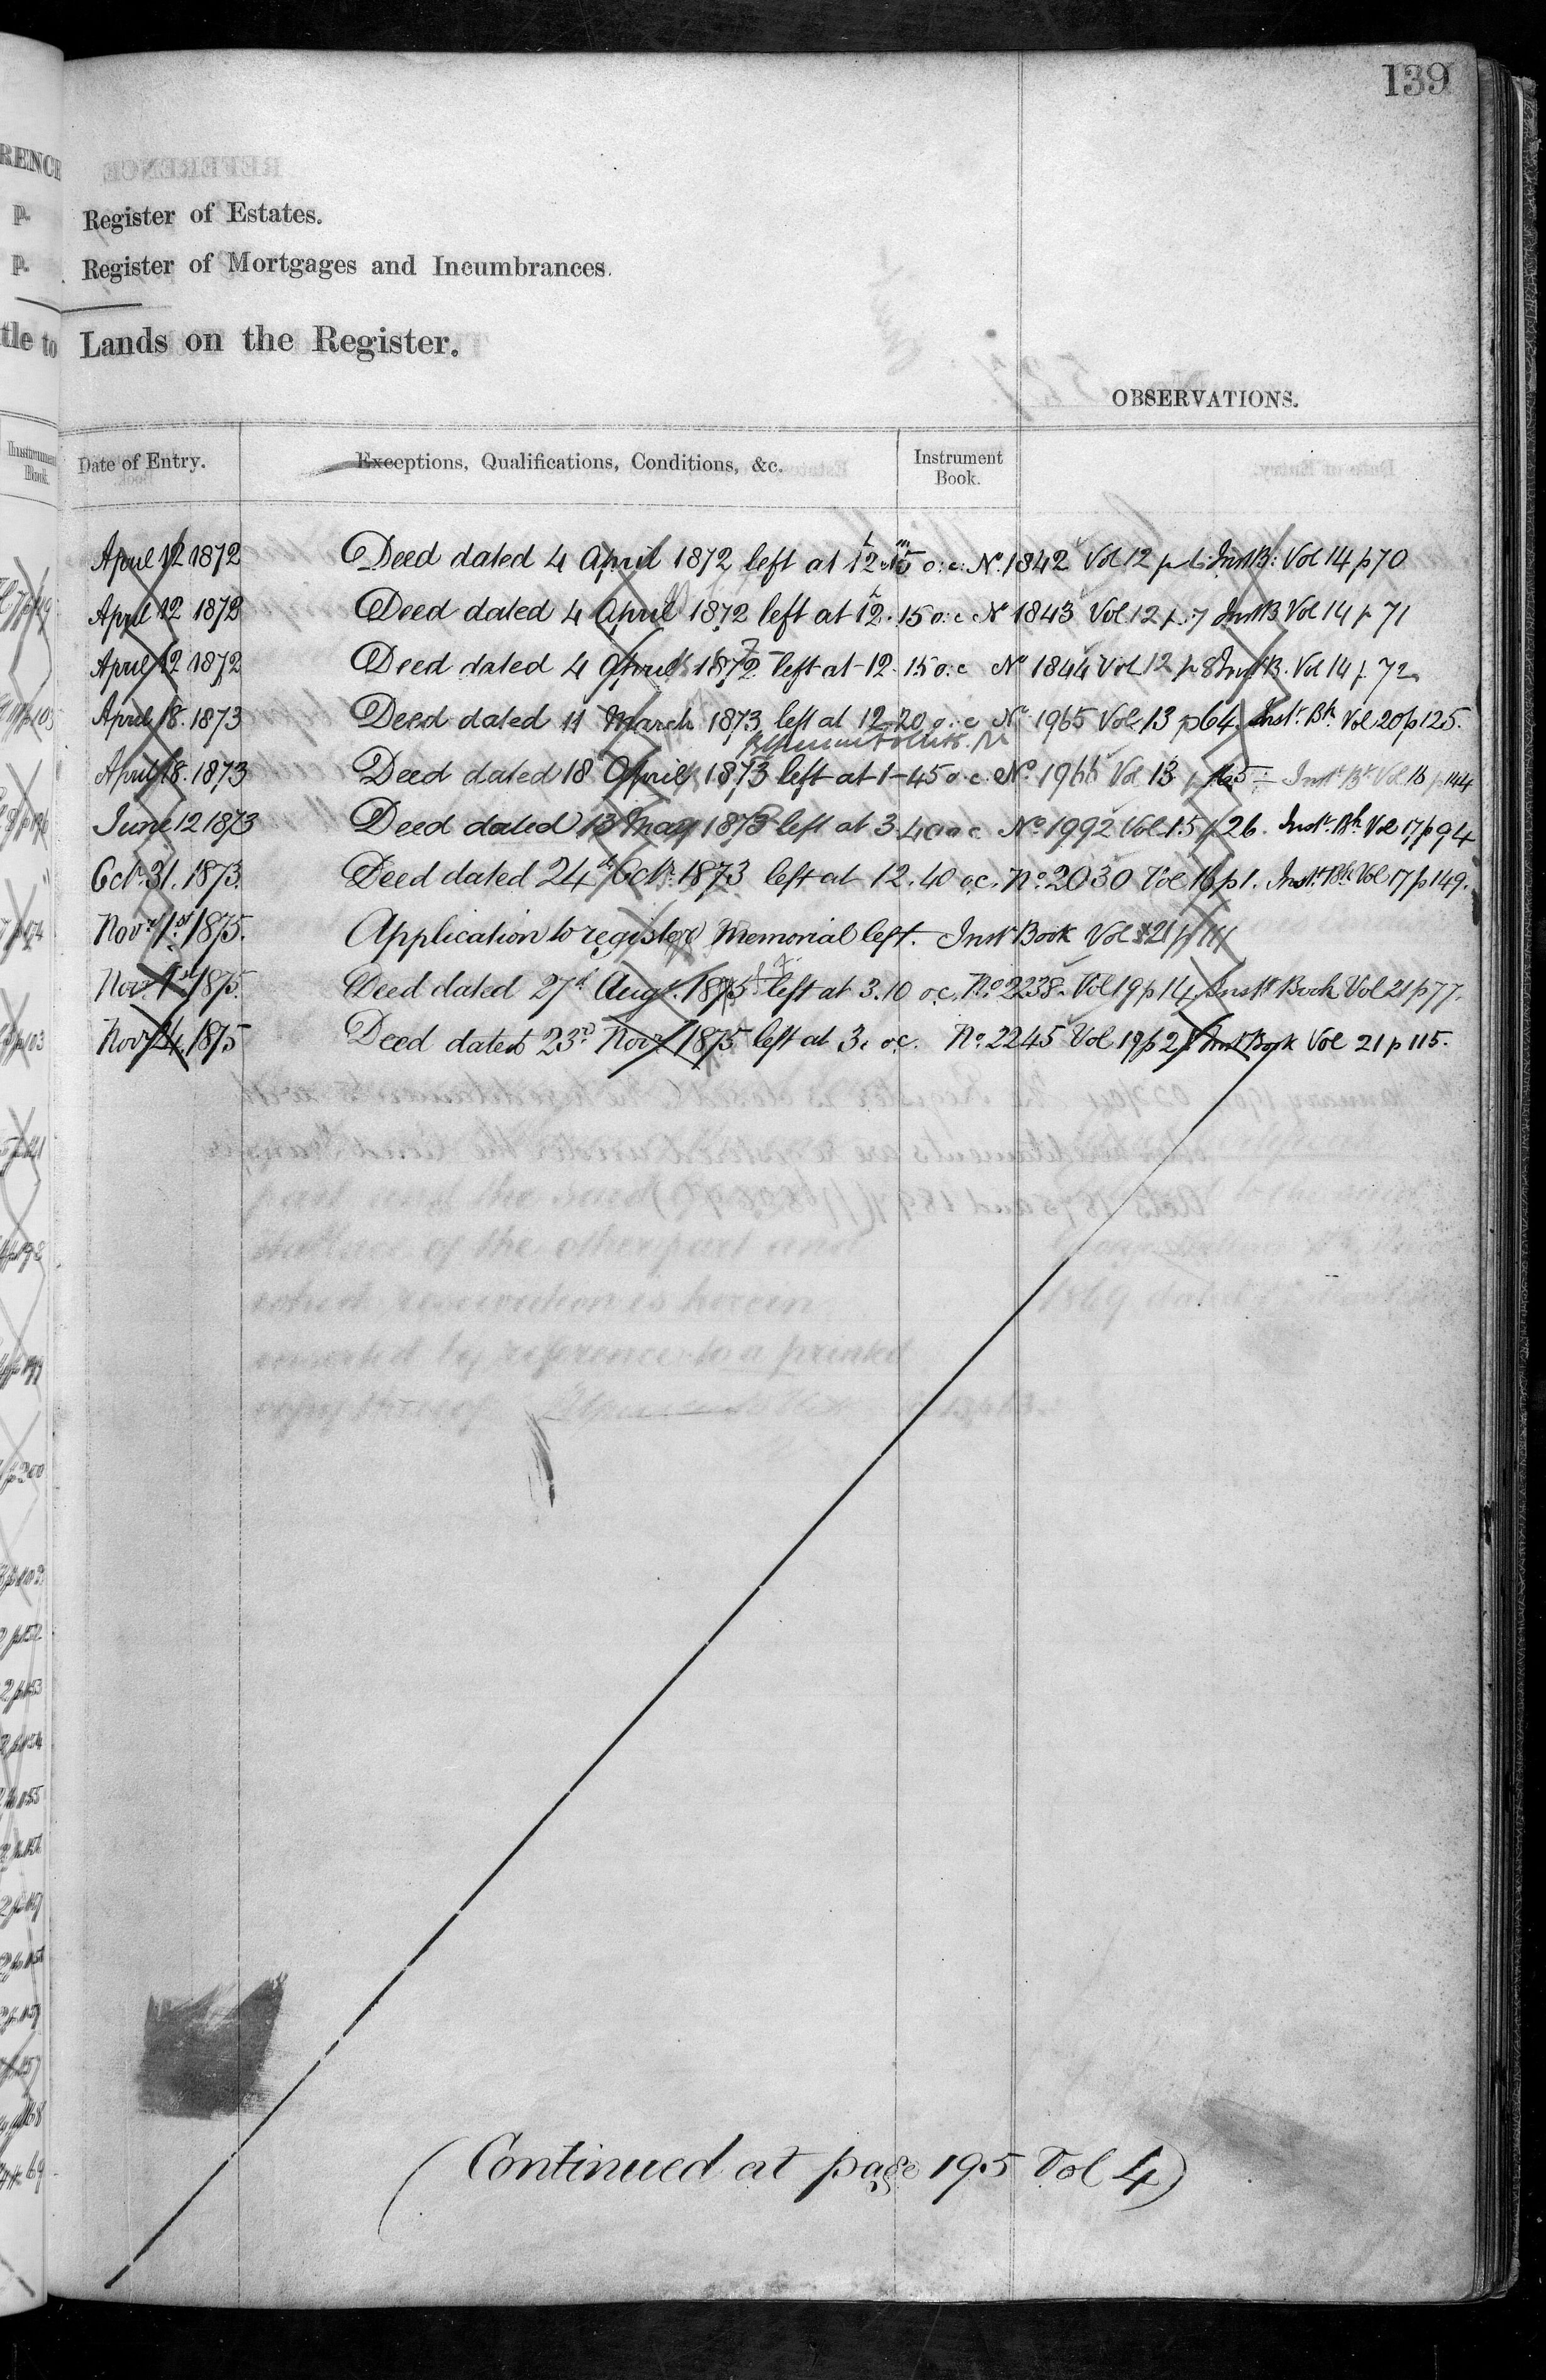 139
Register of Estates.
Register of Mortgages and Incumbrances.
Lands on the Register.
OBSERVATIONS.
Date of Entry. Exceptions, Qualifications, Conditions, &c. Instrument Book.
April 12 1872 Deed dated 4 April 1872 left at 12.15 o:c: No. 1842 Vol 12 p 6 Inst B: Vol 14 p 70
April 12 1872 Deed dated 4 April 1872 left at 12.15 o:c No 1843 Vol 12 p. 7 Inst B Vol 14 p 71
April 12 1872 Deed dated 4 April 1872 left at 12.15 o:c No 1844 Vol 12 p 8 Inst B. Vol 14 p. 72
April 18. 1873 Deed dated 11 March 1873 left at 12-20 o:c No. 1965 Vol 13 p 64. Inst. Bk Vol 20 p 125.
April 18. 1873 Deed dated 18 April 1873 left at 1-45 o:c. No. 1966 Vol 13 p 65 Inst Bk Vol 18 p 144
June 12 1873 Deed dated 13 May 1873 left at 3.40 o c No. 1992 Vol 15 p 26. Inst. Bk Vol 17 p 94
Oct. 31. 1873. Deed dated 24th Oct. 1873 left at 12.40 o.c. No. 2030 Vol 16 p 1. Inst. Bk Vol 17 p 149.
Novr 1st 1875. Application to register Memorial left. Inst Book Vol 21 p 111
Novr 1st 1875. Deed dated 27th Augt. 1875 left at 3.10 o.c. No. 2238. Vol 19 p 14. Inst Book Vol 21 p 77.
Novr 24. 1875 Deed dated 23rd Novr 1875 left at 3. o.c. No. 2245 Vol 19 p 21 Inst Book Vol 21 p 115.
(Continued at page 195 Vol 4)